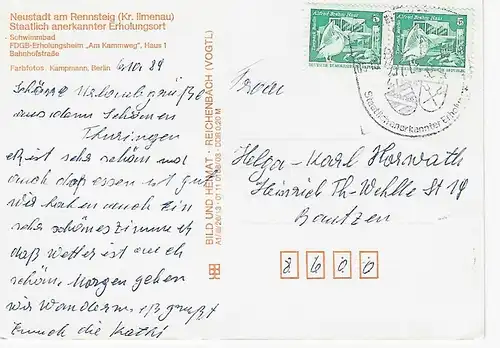 Neustadt am Rennsteig (Kr. Ilmenau)
Staatlich anerkannter Erholungsort
- Schwimmbad
FDGB-Erholungsheim „Am Kammweg", Haus 1
Bahnhofstraße
Farbfotos Kampmann, Berlin
6.10.89
Schöne Urlaubsgrüße
aus dem Schönen
Thüringen
es ist sehr schön und
auch daß essen ist gut
wir haben auch Ein
sehr schönes Zimmer
daß wetter ist auch
schön, Morgen gehen
wir Wandern. Es grüßt
Euch die Kathi
BILD UND HEIMAT · REICHENBACH (VOGTL)
DDR 0,20 M
Alfred-Brehm-Haus
5
Alfred-Brehm-Haus
5
Staatlich anerkannter Erholungsort
Frau
Helga-Karl Horwath
Heinrich Th-Wehle St 14
Bautzen
8 6 0 0